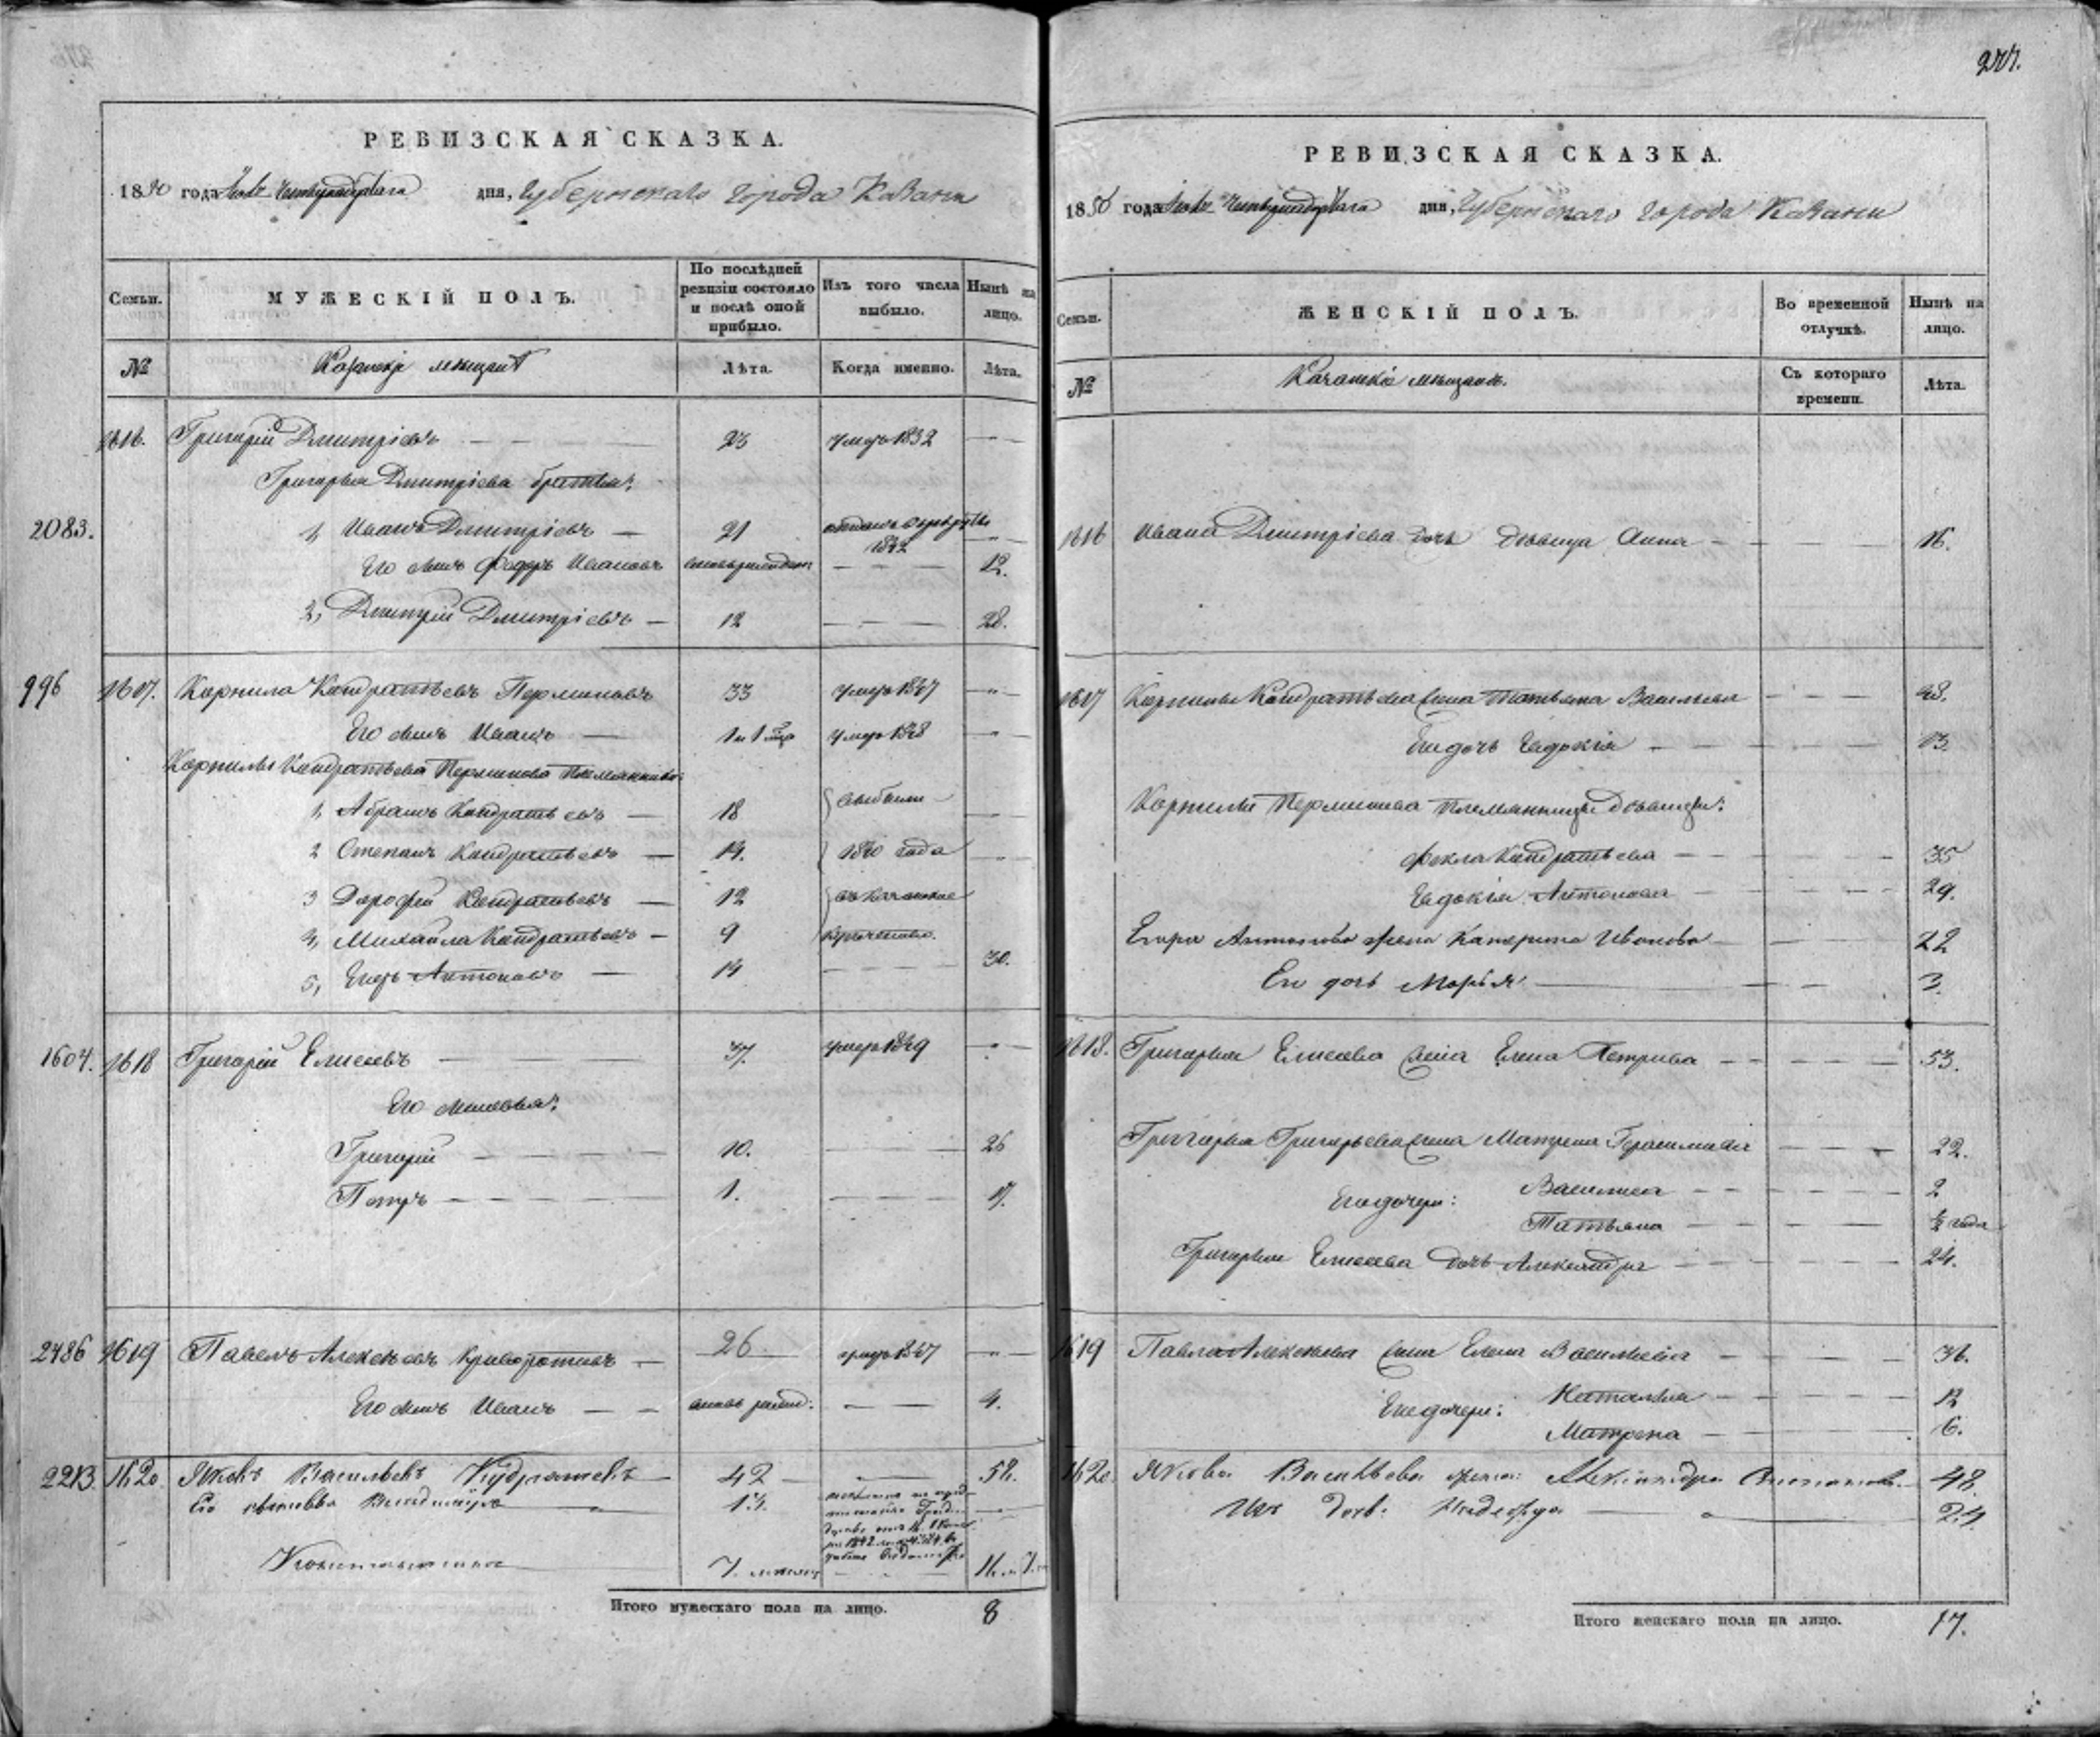 277.
РЕВИЗСКАЯ СКАЗКА.
1850 года дня, Губернскаго города Казани
Семьи.
МУЖЕСКІЙ ПОЛЪ.
По послѣдней ревизіи состояло и послѣ оной прибыло.
Изъ того числа выбыло.
Нынѣ на лицо.
№
Казанскіе мещане
Лѣта.
Когда именно.
Лѣта.
1616. Григорій Дмитріевъ 23 умеръ 1832
Григорья Дмитріева братья:
2083.
1, Иванъ Дмитріевъ 21
Его сынъ Федоръ Ивановъ 12.
2, Дмитрій Дмитріевъ 12 28.
996 1617. Корнила Кандратьевъ Перминовъ 33 умеръ 1847
Его сынъ Иванъ умеръ 1838
Корнилы Кандратьева Перминова племянники:
1, Абрамъ Кандратьевъ 18
2 Степанъ Кандратьевъ 14. 1840 года
3 Дарофей Кандратьевъ 12 въ Казанское
4, Михайла Кандратьевъ 9 купечество.
5, Егоръ Антоновъ 14 30.
1604. 1618 Григорій Елисеевъ 37. умеръ 1849
Его сыновья:
Григорій 10. 26
Петръ 1. 17.
2486 1619 Павелъ Алексѣевъ 26 умеръ 1847
Его сынъ Иванъ 4.
2213. 1620. Яковъ Васильевъ Кудрявцевъ 42
Его сыновья Владимиръ
Константинъ 7. месяц
Итого мужескаго пола на лицо. 8
РЕВИЗСКАЯ СКАЗКА.
1850 года дня, Губернскаго города Казани
Семьи.
ЖЕНСКІЙ ПОЛЪ.
Во временной отлучкѣ.
Нынѣ на лицо.
№
Казанскіе мещане.
Съ котораго времени.
Лѣта.
1616 Ивана Дмитріева дочь девица Анна 16.
1617 Корнилы Кандратьева жена Татьяна Васильева 48.
Ея дочь Евдокія 13.
Корнилы Перминова племянницы девицы:
Фекла Кандратьева 35
Евдокія Антонова 29.
Егора Антонова жена Катерина Иванова 22
Ея дочь Марья 3.
1618. Григорья Елисеева жена Елена Петрова 53.
Григорья Григорьева жена Матрена Герасимова 22.
Его дочери: Василиса 2
Татьяна ½ года
Григорья Елисеева дочь Александра 24.
1619 Павла Алексѣева жена Елена Васильева 36.
Его дочери: Наталья 12
Матрена 6.
1620. Якова Васильева жена: Александра 48.
Ихъ дочь: Надежда 24.
Итого женскаго пола на лицо. 17.